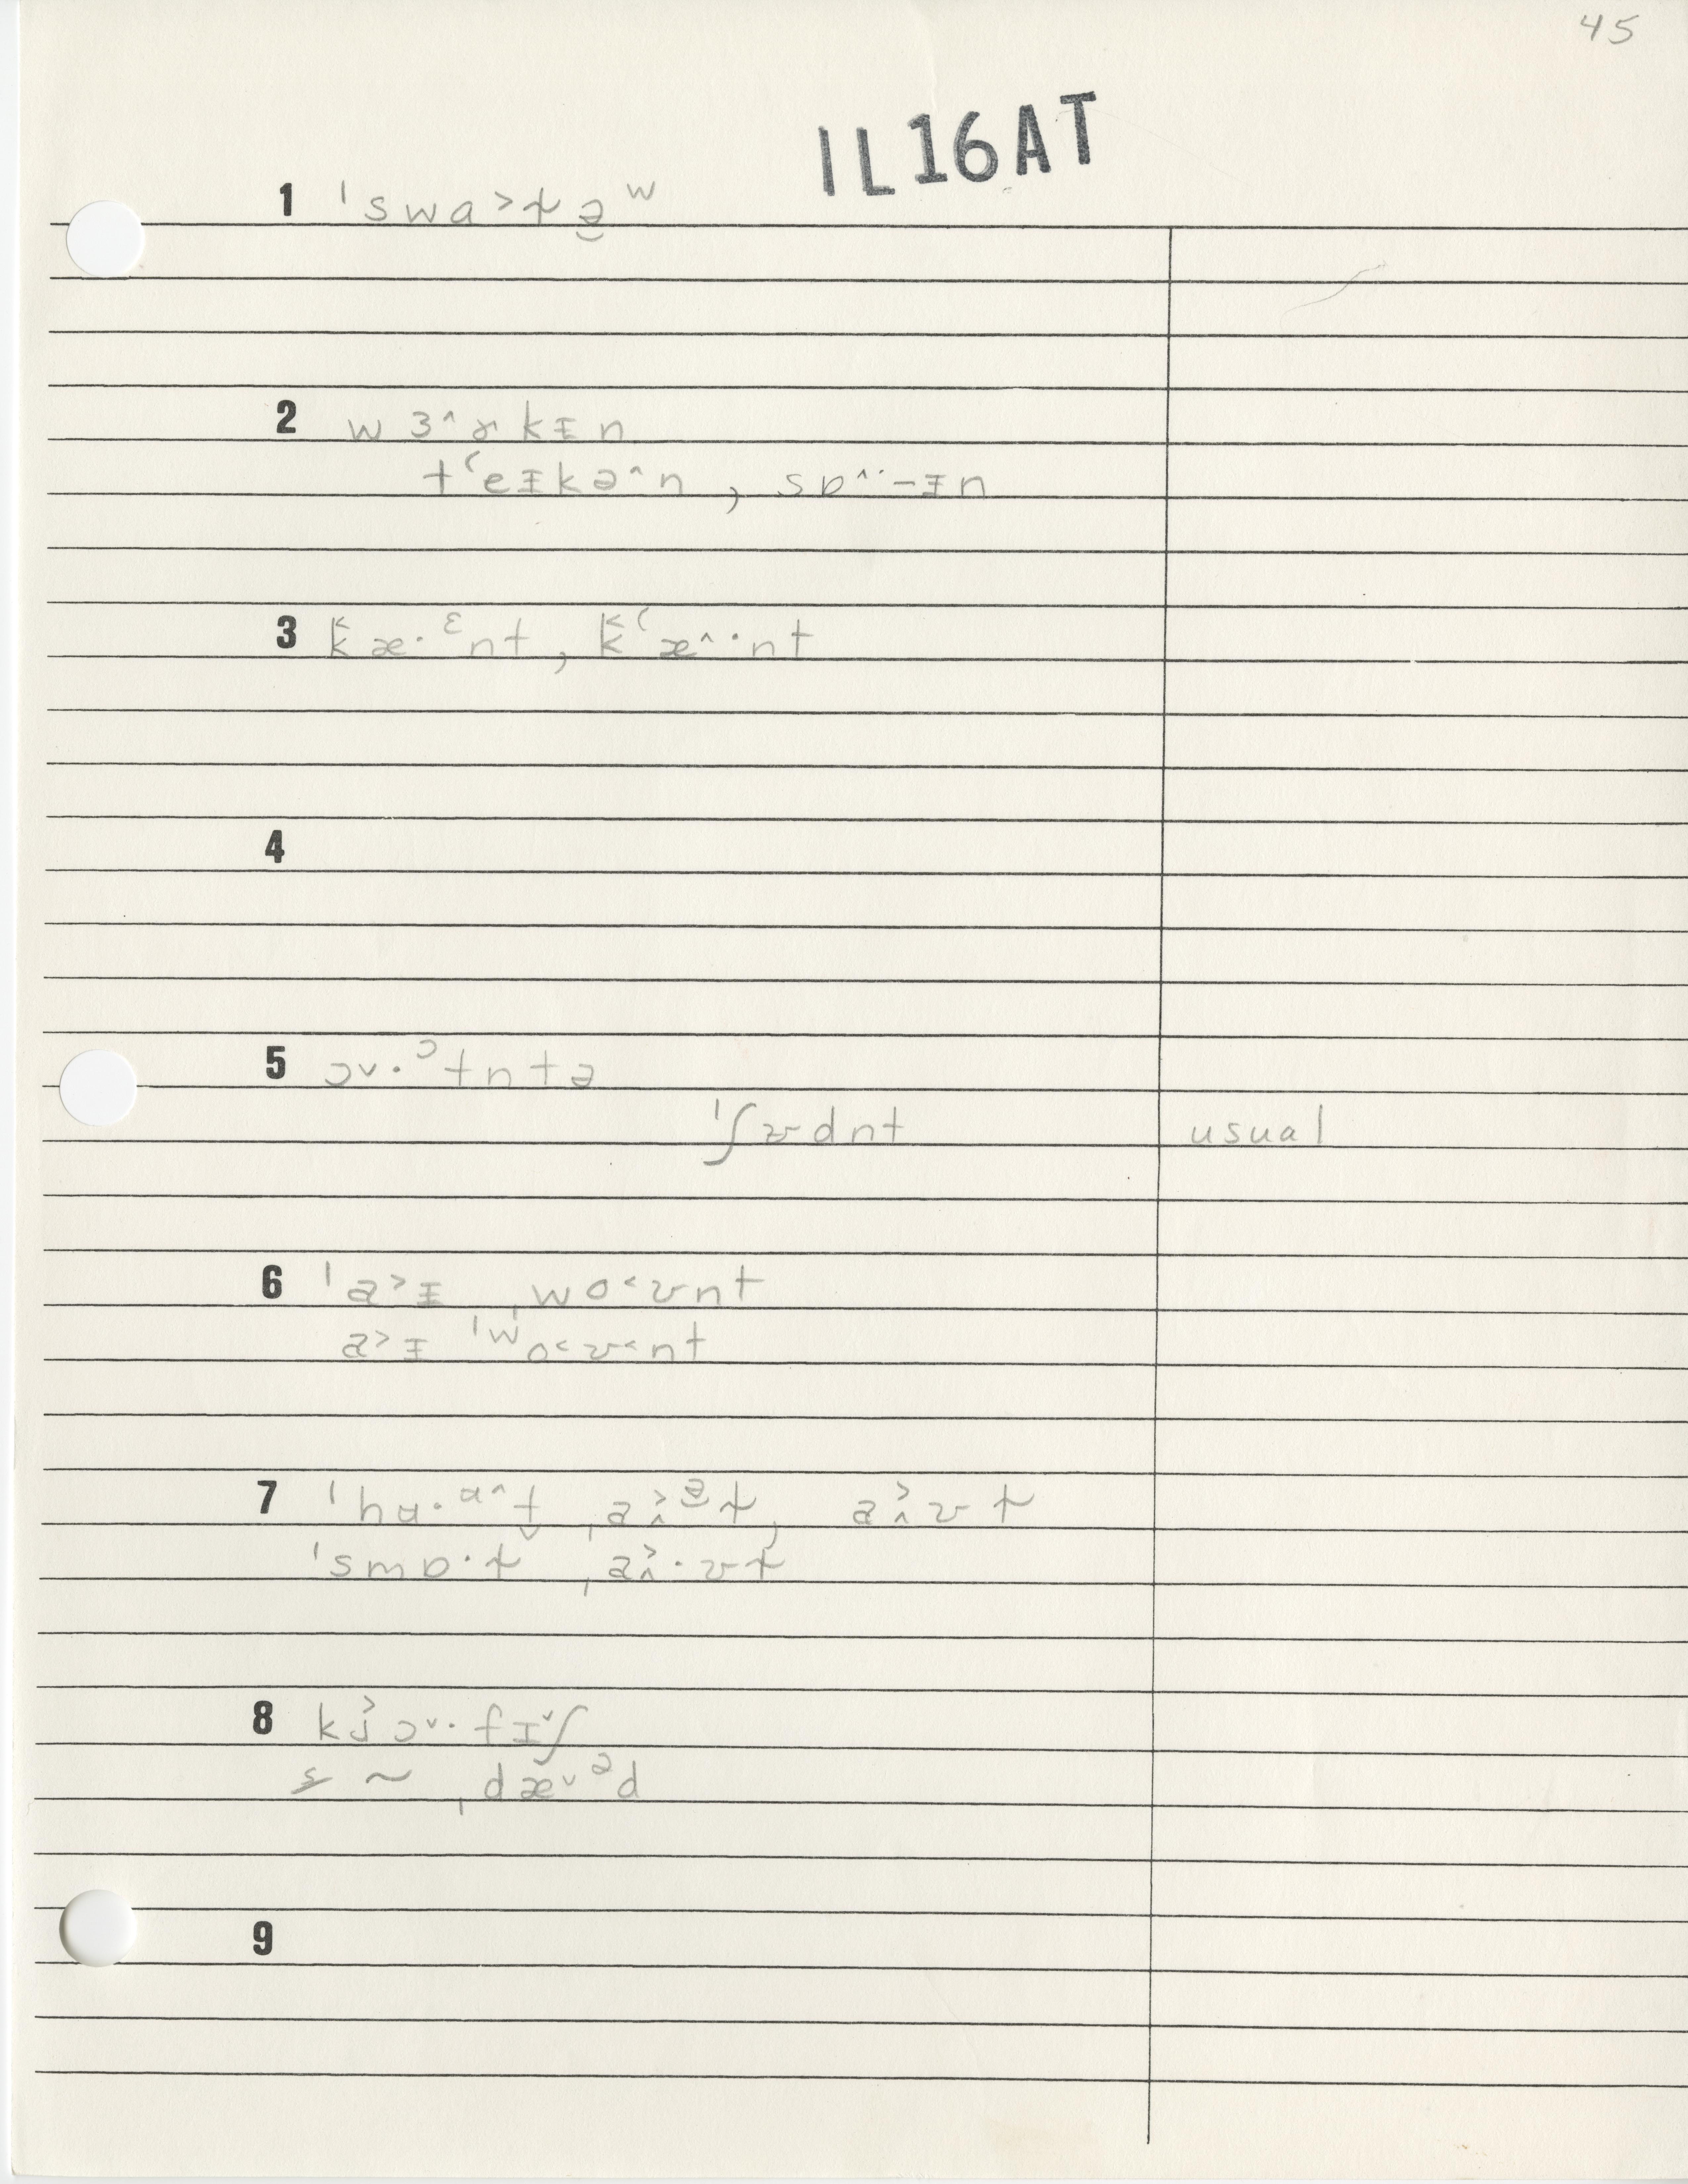 45
IL16AT
1 ˈswa˃t̬ə̯ʷ
2 wɜ˄ɚkɪn
tʻeɪkə˄n, sɒ˄·-ɪn
3 k̟æ·ᵋnt, k̟ʻæ˄·nt
4
5 ɔ˅·ᵓtntə
ˈʃʊdnt usual
6 ˈa˃ɪ ˌwo˂ʊnt
a˃ɪ ˈwo˂ʊ˂nt
7 ˈhɑ·ᵅ˄t̬ ˌa˃˄ᵊt̬, a˃˄ʊt̬
ˈsmɒ·t̬ ˌa˃˄·ʊt̬
8 kj˃ɔ˅·fɪ˅ʃ
~ ˌdæ˅ᵊd
9